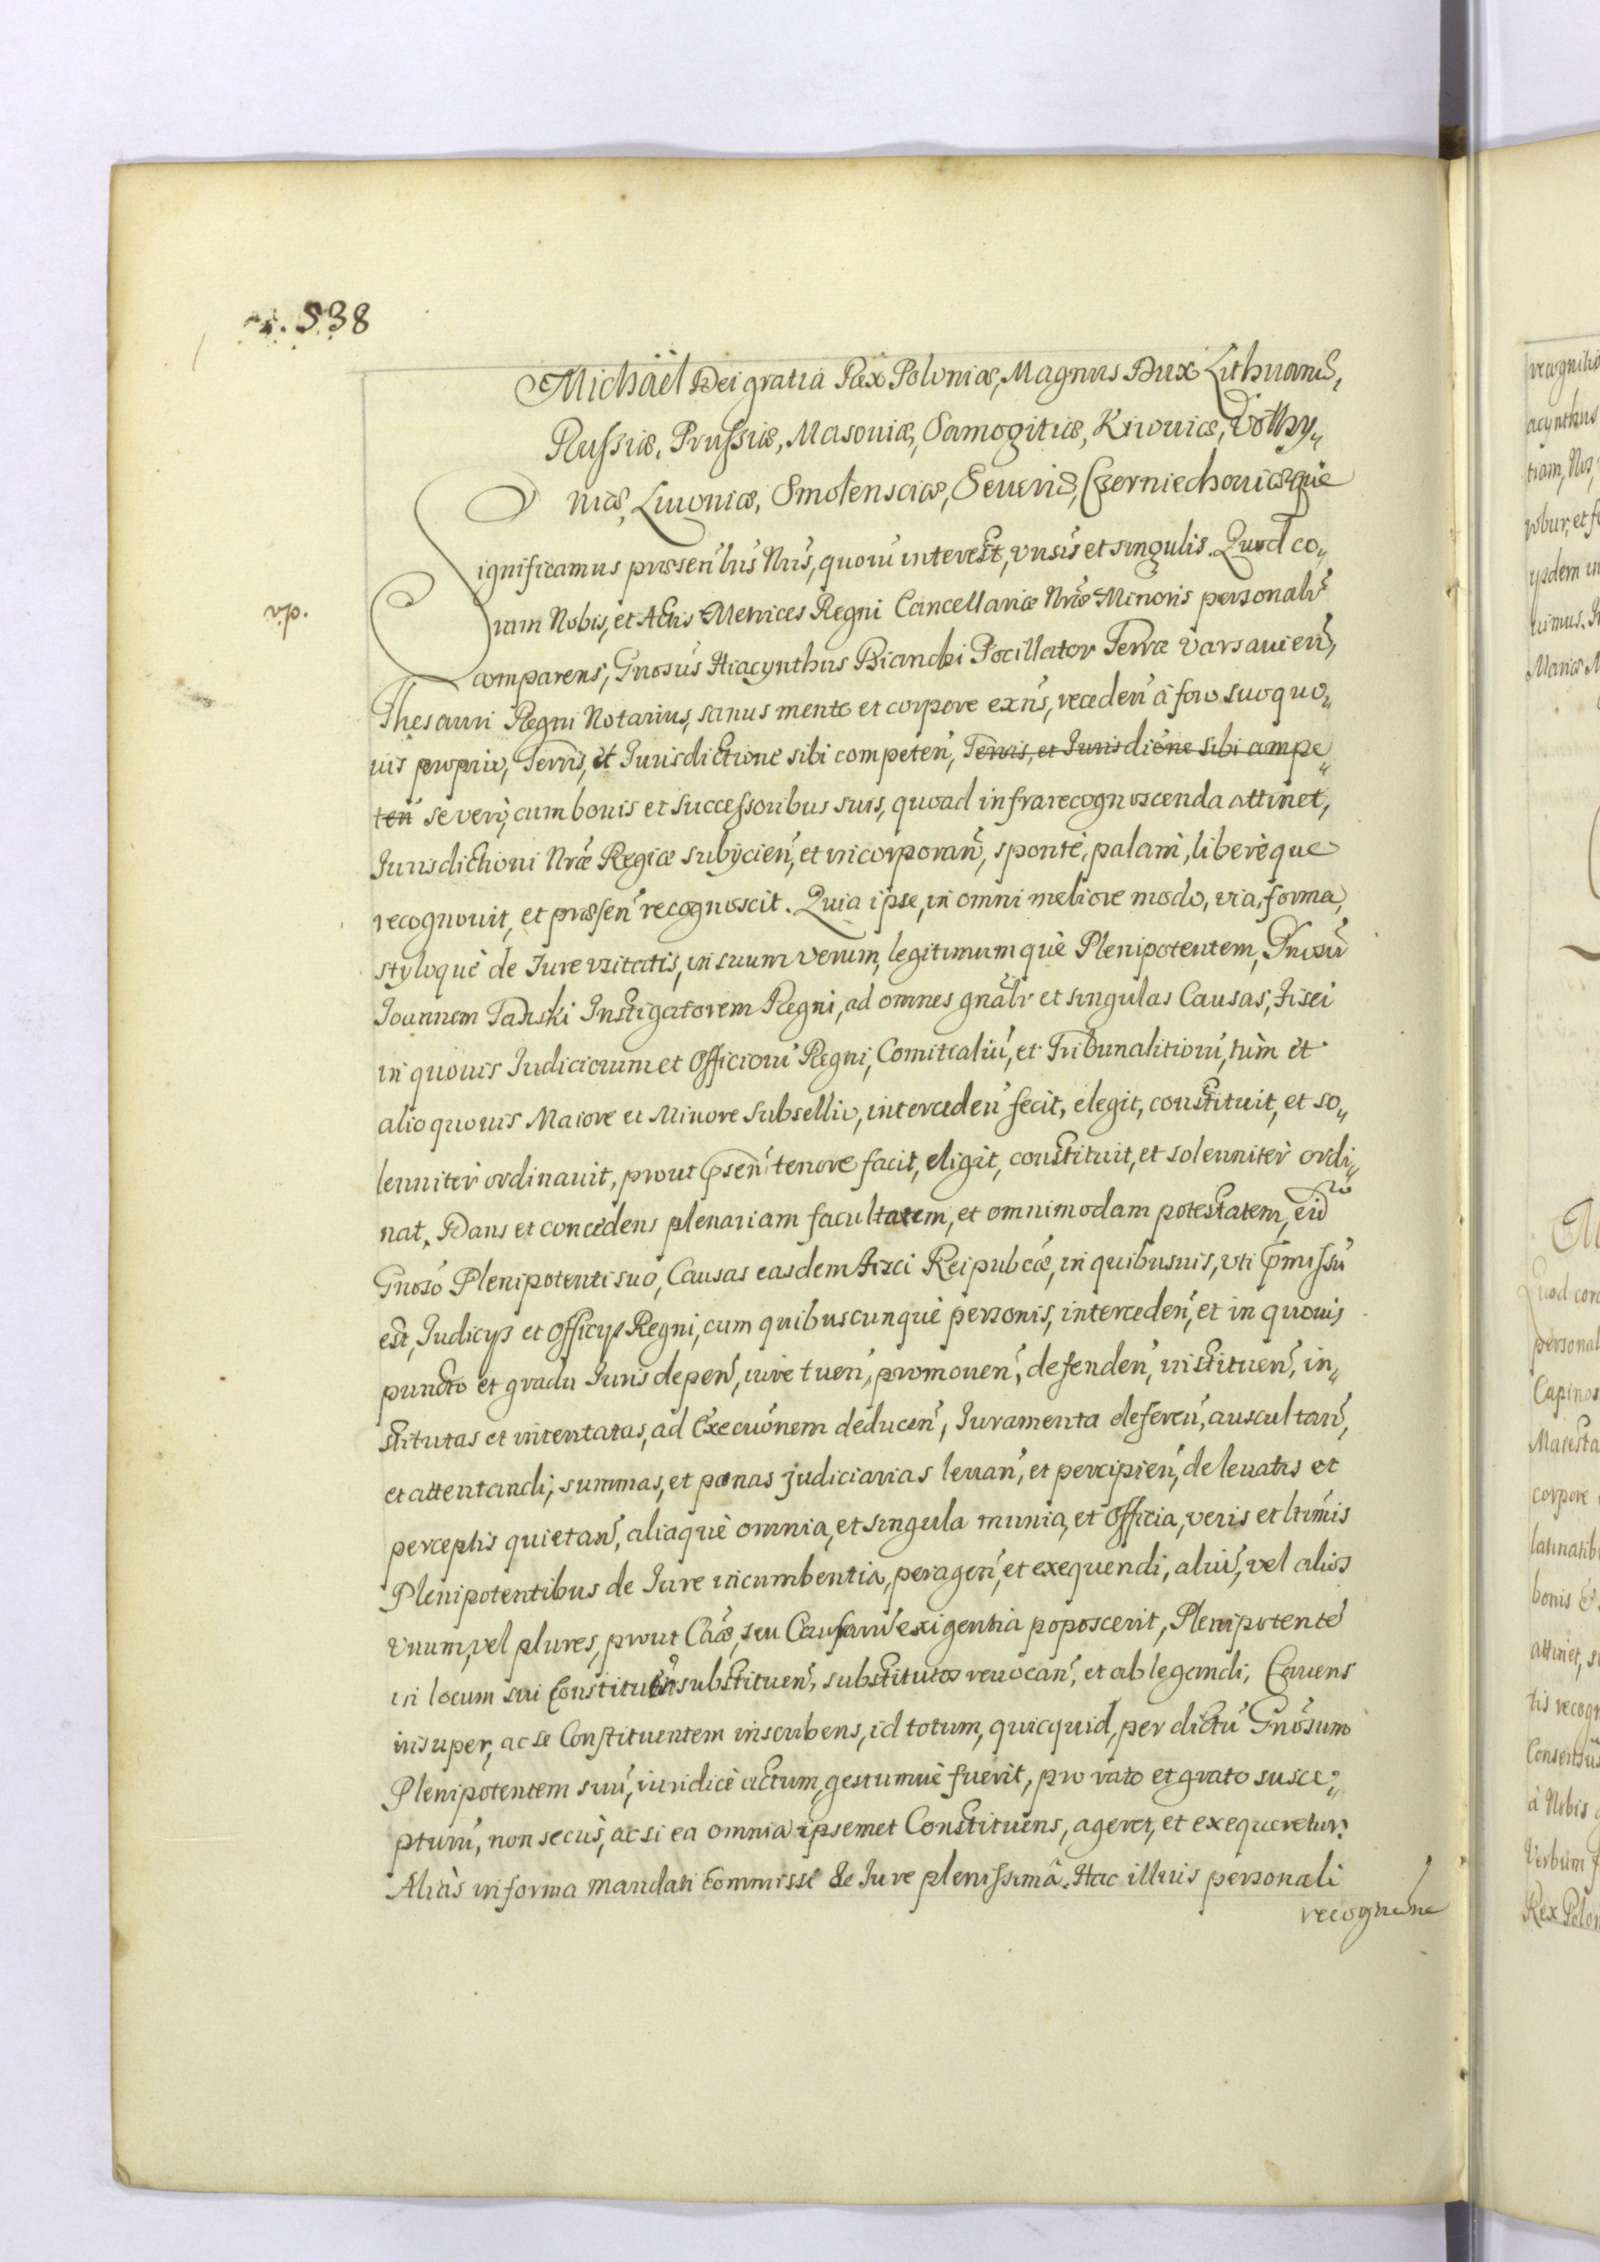 538
Michaël Dei gratia Rex Poloniæ, Magnus Dux Lithuaniæ,
Russiæ, Prussiæ, Masouiæ, Samogitiæ, Kiouiæ, Volhy„
niæ, Liuoniæ, Smolensciæ, Seueriæ, Czerniechouiæque
Significamus præsen̄bus Nr̃is, quorũ interest, vnis̃ et singulis. Quod co„
ram Nobis, et Actis Metrices Regni Cancellariæ Nr̃æ Minoris personalr̃
v.p.
comparens, Gnosus Hiacynthus Bianchi Pocillator Terræ Varsauien̄,
Thesauri Regni Notarius, sanus mente et corpore exñs, receden̄ à foro suo quo„
uis proprio, Terris, et Jurisdictione sibi competen̄, Terris, et Jurisdicõne sibi compe„
ten̄ se verò, cum bonis et successoribus suis, quoad infrarecognoscenda attinet,
Jurisdictioni Nr̃æ Regiæ subijcien̄, et incorporan̄, spontè, palam, liberèque
recognouit, et præsen̄ recognoscit. Quia ipse, in omni meliore modo, via, forma,
styloquè de Jure vsitatis, in suum verum, legitimumquè Plenipotentem, Gnosũ
Joannem Tański Instigatorem Regni, ad omnes gñalr̃ et singulas Causas, Fisci
in quouis Judiciorum et Officiorũ Regni, Comitialiũ, et Tribunalitiorũ, tùm et
alio quouis Maiore et Minore Subsellio, interceden̄ fecit, elegit, constituit, et so„
lenniter ordinauit, prout p̃sen̄ tenore facit, eligit, constituit, et solenniter ordi„
nat. Dans et concedens plenariam facultatem, et omnimodam potestatem, eid̃
Gnoso Plenipotenti suo, Causas easdem Fisci Reipubcæ, in quibusuis, vti p̃missũ
est, Judicijs et Officijs Regni, cum quibuscunquè personis, interceden̄, et in quouis
puncto et gradu Juris depen̄, iure tuen̄, promouen̄, defenden̄, instituen̄, in„
stitutas et intentatas, ad Execuõnem deducen̄, Juramenta deferen̄, auscultan̄,
et attentandi, summas, et pænas judiciarias leuan̄, et percipien̄, de leuatis et
perceptis quietan̄, aliaquè omnia, et singula munia, et Officia, veris et ltimis
Plenipotentibus de Jure incumbentia, peragen̄, et exequendi, aliũ, vel alios
vnum, vel plures, prout Cãæ, seu Causarũ exigentia poposcerit, Plenipotentẽ
in locum sui Constituen̄ substituen̄, substitutos reuocan̄, et ablegandi, Cauens
insuper, ac se Constituentem inscribens, id totum, quicquid, per dictũ Gnosum
Plenipotentem suũ, iuridicè actum, gestumuè fuerit, pro rato et grato susce„
pturũ, non secùs, ac si ea omnia ipsemet Constituens, ageret, et exequeretur.
Aliàs in forma mandati Commissi de Jure plenissimâ. Hac illius personali
recognõne